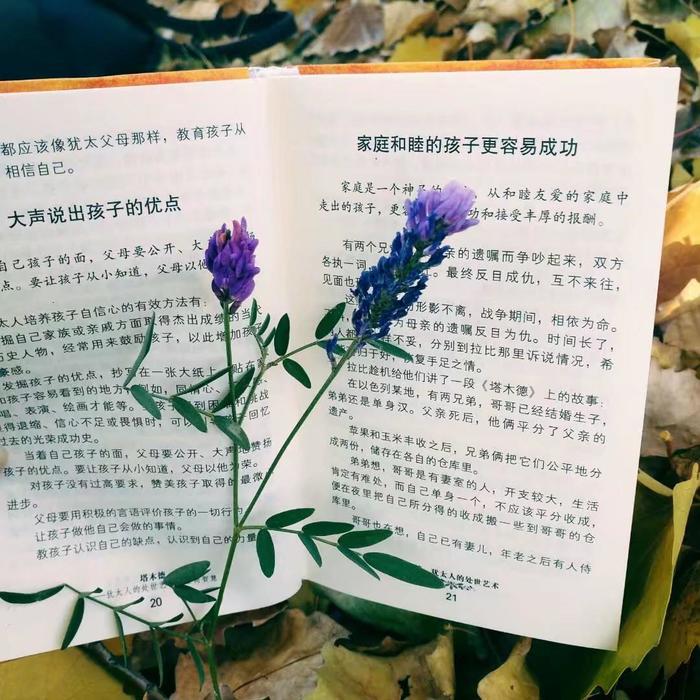 都应该像犹太父母那样，教育孩子从
相信自己。
大声说出孩子的优点
自己孩子的面，父母要公开、大
点。要让孩子从小知道，父母以他
太人培养孩子自信心的有效方法有：
掘自己家族或亲戚方面取得杰出成绩的
历史人物，经常用来鼓励孩子，以此增加孩
发掘孩子的优点，抄写在一张大纸上，贴在
和孩子容易看到的地方，例如，同情心、
唱、表演、绘画才能等。
得退缩、信心不足或畏惧时，可以 孩子回忆
过去的光荣成功史。
当着自己孩子的面，父母要公开、大声地赞扬
孩子的优点。要让孩子从小知道，父母以他为荣。
对孩子没有过高要求，赞美孩子取得的最微
进步。
父母要用积极的言语评价孩子的一切行为
让孩子做他自己会做的事情。
教孩子认识自己的缺点，认识到自己的力量
塔木德 智慧
20
家庭和睦的孩子更容易成功
家庭是一个神 从和睦友爱的家庭中
走出的孩子，更容 功和接受丰厚的报酬。
有两个兄 亲的遗嘱而争吵起来，双方
各执一词， 最终反目成仇，互不来往，
见面也
这 形影不离，战争期间，相依为命。
为母亲的遗嘱反目为仇。时间长了，
样不妥，分别到拉比那里诉说情况，希
好，恢复手足之情。
拉比趁机给他们讲了一段《塔木德》上的故事：
在以色列某地，有两兄弟，哥哥已经结婚生子，
弟弟还是单身汉。父亲死后，他俩平分了父亲的
遗产。
苹果和玉米丰收之后，兄弟俩把它们公平地分
成两份，储存在各自的仓库里。
弟弟想，哥哥是有妻室的人，开支较大，生活
肯定有难处，而自己单身一个，不应该平分收成，
便在夜里把自己所分得的收成搬一些到哥哥的仓
库里。
哥哥也在想，自己已有妻儿，年老之后有人侍
犹太人的处世艺术
21